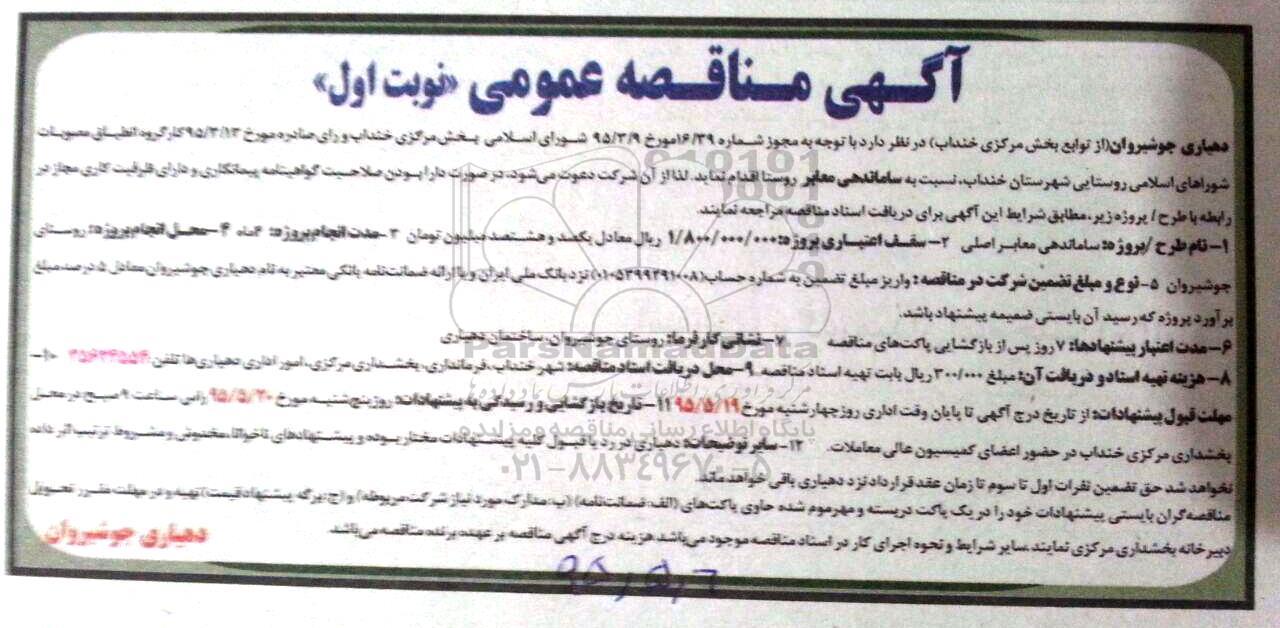 آگهی مناقصه عمومی «نوبت اول»
دهیاری جوشیروان(از توابع بخش مرکزی خنداب) در نظر دارد با توجه به مجوز شماره ۱۶/۳۹مورخ ۹۵/۳/۹ شورای اسلامی بخش مرکزی خنداب و رای صادره مورخ ۹۵/۳/۱۳کارگروه انطباق مصوبات
شوراهای اسلامی روستایی شهرستان خنداب، نسبت به ساماندهی معابر روستا اقدام نماید. لذا از آن شرکت دعوت می‌شود، در صورت دارا بودن صلاحیت گواهینامه پیمانکاری و دارای ظرفیت کاری مجاز در
رابطه با طرح/ پروژه زیر، مطابق شرایط این آگهی برای دریافت اسناد مناقصه مراجعه نمایند.
۱- نام طرح /پروژه: ساماندهی معابر اصلی ۲- سقف اعتباری پروژه: ۱/۸۰۰/۰۰۰/۰۰۰ ریال معادل یکصد و هشتصد میلیون تومان ۳- مدت انجام پروژه: ۴ماه ۴- محل انجام پروژه: روستای
جوشیروان ۵- نوع و مبلغ تضمین شرکت در مناقصه: واریز مبلغ تضمین به شماره حساب(۰۱۰۵۳۹۹۲۹۱۰۰۸) نزد بانک ملی ایران و یا ارائه ضمانت‌نامه بانکی معتبر به نام دهیاری جوشیروان معادل ۵ درصد مبلغ
برآورد پروژه که رسید آن بایستی ضمیمه پیشنهاد باشد.
۶- مدت اعتبار پیشنهادها: ۷ روز پس از بازگشایی پاکت‌های مناقصه ۷- نشانی کارفرما: روستای جوشیروان، ساختمان دهیاری
۸- هزینه تهیه اسناد و دریافت آن: مبلغ ۳۰۰/۰۰۰ ریال بابت تهیه اسناد مناقصه ۹- محل دریافت اسناد مناقصه: شهر خنداب، فرمانداری، بخشداری مرکزی، امور اداری دهیاری‌ها تلفن: ۳۵۶۲۴۵۵۴ ۱۰-
مهلت قبول پیشنهادات: از تاریخ درج آگهی تا پایان وقت اداری روز چهارشنبه مورخ ۹۵/۵/۱۹ ۱۱- تاریخ بازگشایی و رسیدگی به پیشنهادات: روز پنج‌شنبه مورخ ۹۵/۵/۲۰ راس ساعت ۹ صبح در محل
بخشداری مرکزی خنداب در حضور اعضای کمیسیون عالی معاملات. ۱۲- سایر توضیحات: دهیاری در رد یا قبول کلیه پیشنهادات مختار بوده و پیشنهادهای ناخوانا، مخدوش و مشروط ترتیب اثر داده
نخواهد شد حق تضمین نفرات اول تا سوم تا زمان عقد قرارداد نزد دهیاری باقی خواهد ماند.
مناقصه‌گران بایستی پیشنهادات خود را در یک پاکت دربسته و مهرموم شده حاوی پاکت‌های (الف: ضمانت‌نامه) (ب: مدارک مورد نیاز شرکت مربوطه) و (ج: برگه پیشنهاد قیمت) تهیه و در مهلت مقرر تحویل
دبیرخانه بخشداری مرکزی نمایند، سایر شرایط و نحوه اجرای کار در اسناد مناقصه موجود می‌باشد، هزینه درج آگهی مناقصه بر عهده برنده مناقصه می‌باشد.
دهیاری جوشیروان
۹۵،۵،۶
ParsNamadData
پایگاه اطلاع رسانی مناقصه و مزایده
۰۲۱-۸۸۳۴۹۶۷۰-۵